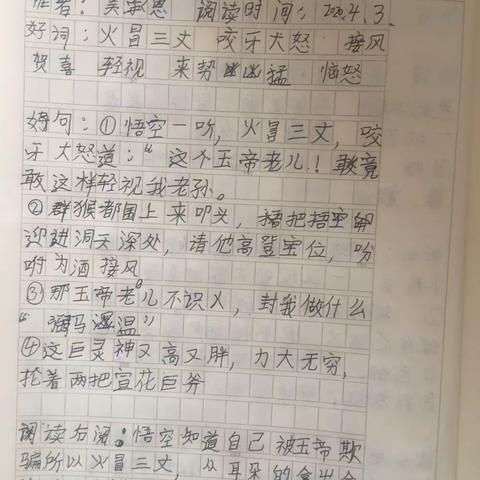 作者：吴承恩 阅读时间：2020.4.3
好词：火冒三丈 咬牙大怒 接风
贺喜 轻视 来势凶猛 恼怒
好句：①悟空一听，火冒三丈，咬
牙大怒道：“这个玉帝老儿！敢竟
敢这样轻视我老孙。
②群猴都围上来叩头，把悟空
迎进洞天深处，请他高登宝位，吩
咐为酒接风
③那玉帝老儿不识人，封我做什么
“弼马温”
④这巨灵神又高又胖，力大无穷，
抡着两把宣花巨斧
阅读右阅：悟空知道自己被玉帝欺
骗所以火冒三丈，从耳朵的拿出金